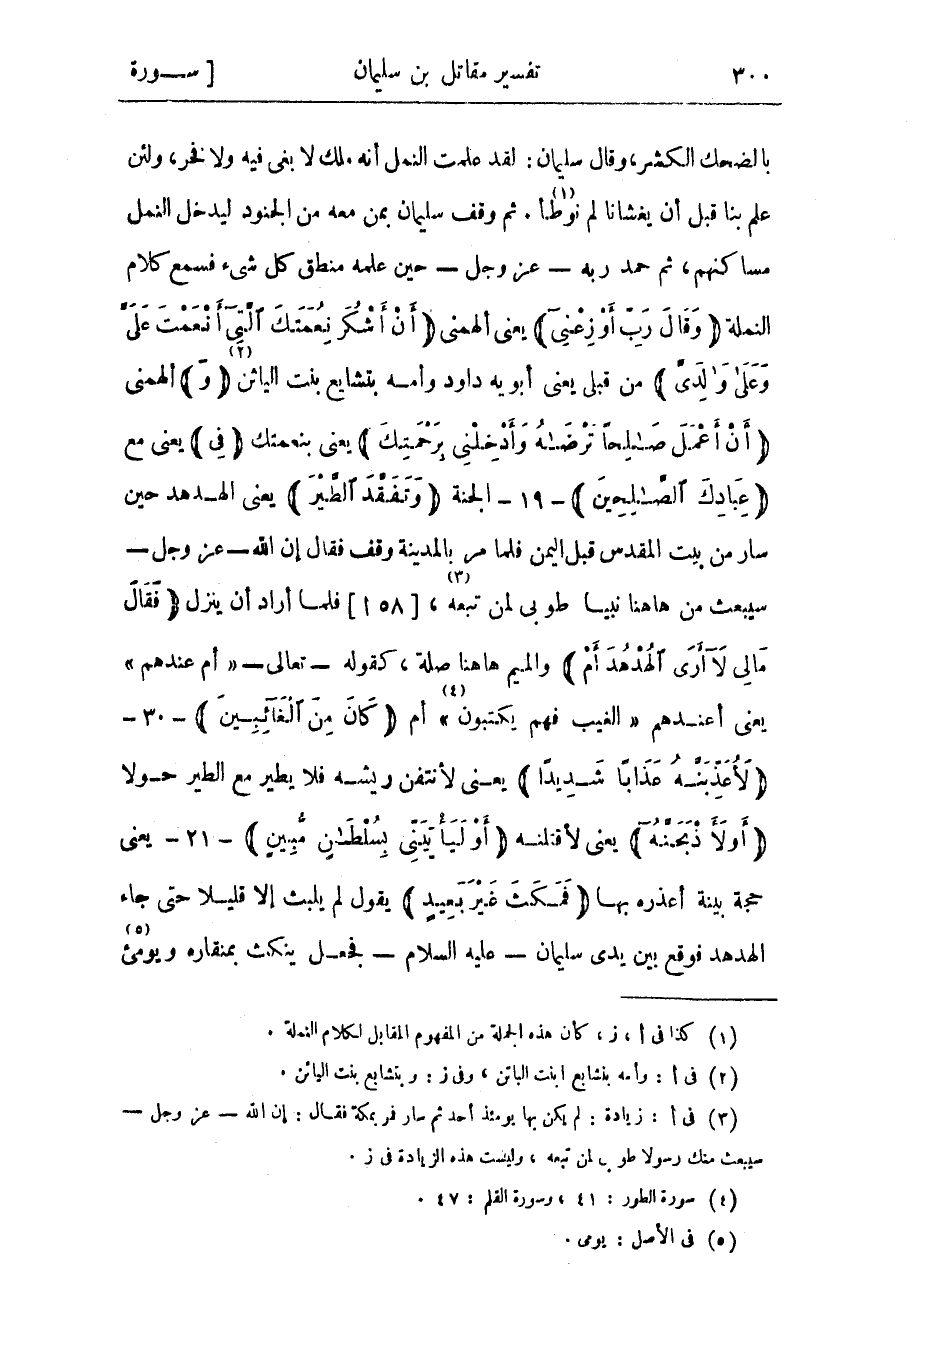 ٣٠٠ تفسير مقاتل بن سليمان [ سـورة
بالضحك الكشر، وقال سليمان : لقد علمت النمل أنه ملك لا بغى فيه ولا فخر، ولئن
علم بنا قبل أن يغشانا لم نوطأ (١) . ثم وقف سليمان بمن معه من الجنود ليدخل النمل
مساكنهم، ثم حمد ربه — عز وجل — حين علمه منطق كل شىء فسمع كلام
النملة ( وَقَالَ رَبِّ أَوْزِعْنِىٓ ) يعنى ألهمنى ( أَنْ أَشْكُرَ نِعْمَتَكَ ٱلَّتِىٓ أَنْعَمْتَ عَلَىَّ
وَعَلَىٰ وَٰلِدَىَّ ) من قبلى يعنى أبويه داود وأمـه بتشايع بنت اليائن (٢) ( وَ ) ألهمنى
( أَنْ أَعْمَلَ صَـٰلِحًا تَرْضَـٰهُ وَأَدْخِلْنِى بِرَحْمَتِكَ ) يعنى بنعمتك ( فِى ) يعنى مع
( عِبَادِكَ ٱلصَّـٰلِحِينَ ) – ١٩ – الجنة ( وَتَفَقَّدَ ٱلطَّيْرَ ) يعنى الهـدهد حين
سار من بيت المقدس قبل اليمن فلما مر بالمدينة وقف فقال إن الله — عز وجل —
سيبعث من هاهنا نبيـا طوبى لمن تبعه (٣) ، [ ١٥٨ ] فلمـا أراد أن ينزل ( فَقَالَ
مَالِىَ لَآ أَرَى ٱلْهُدْهُدَ أَمْ ) والميم هاهنا صلة ، كقوله — تعالى — « أم عندهم »
يعنى أعنـدهم « الغيب فهم يكتبون (٤) » أم ( كَانَ مِنَ ٱلْغَآئِبِـينَ ) – ٣٠ –
( لَأُعَذِّبَنَّـهُ عَذَابًا شَـدِيدًا ) يعـنى لأنتفن ريشـه فلا يطير مع الطير حـولا
( أَوْ لَأَذْبَحَنَّهُٓ ) يعنى لأقتلنـه ( أَوْ لَيَأْتِيَنِّى بِسُلْطَـٰنٍ مُّبِينٍ ) – ٢١ – يعنى
حجة بينة أعذره بهـا ( فَمَـكَثَ غَيْرَ بَعِيدٍ ) يقول لم يلبث إلا قليـلا حتى جاء
الهدهد فوقع بين يدى سليمان — عليه السلام — فجعـل ينكث بمنقاره ويومئ (٥)
(١) كذا فى أ ، ز ، كأن هذه الجملة من المفهوم المقابل لكلام النملة .
(٢) فى أ : وأمه بتشايع ابنت اليائن ، وفى ز : وبتشايع بنت اليائن .
(٣) فى أ : زيادة : لم يكن بها يومئذ أحد ثم سار فر بمكة فقـال : إن الله — عز وجل —
سيبعث منك رسولا طوبى لمن تبعه ، وليست هذه الزيادة فى ز .
(٤) سورة الطور : ٤١ ، وسورة القلم : ٤٧ .
(٥) فى الأصل : يومى .